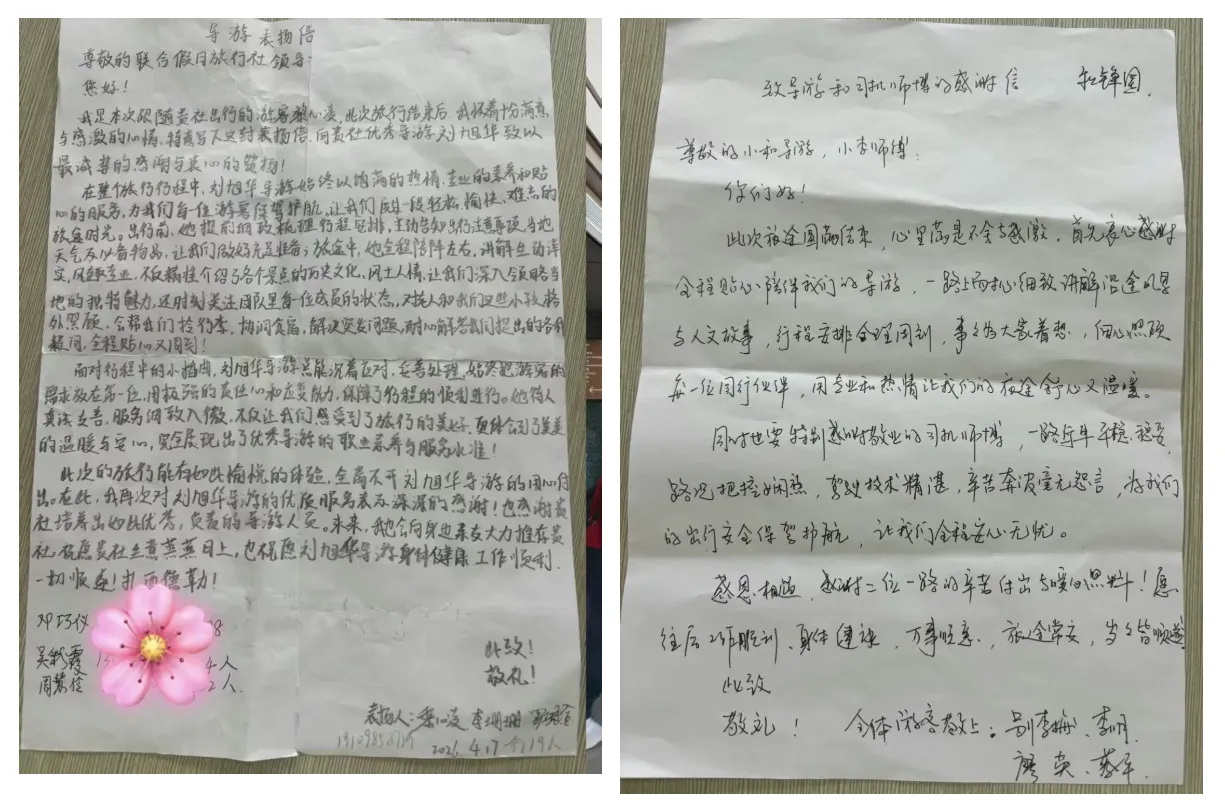 导游表扬信
尊敬的联合假日旅行社领导:
您好!
我是本次跟随贵社出行的游客 心凌,此次旅行结束后,我怀着十分满意
与感激的心情,特意写下这封表扬信,向贵社优秀导游刘旭华致以
最诚挚的感谢与衷心的赞扬!
在整个旅行行程中,刘旭华导游始终以饱满的热情、专业的素养和贴
心的服务,为我们每一位游客保驾护航,让我们度过一段轻松、愉快、难忘的
旅途时光。出行前,她提前细致梳理行程安排,主动告知出行注意事项、当地
天气及必备物品,让我们做好充足准备;旅途中,她全程陪伴左右,讲解生动详
实、风趣专业,不仅精准介绍了各个景点的历史文化、风土人情,让我们深入领略当
地的独特魅力,还时刻关注团队里每一位成员的状态,对老人和我们这些小孩格
外照顾,会帮我们拎行李、协调食宿,解决突发问题,耐心解答我们提出的各种
疑问,全程贴心又周到!
面对行程中的小插曲,刘旭华导游总能沉着应对、妥善处理,始终把游客的
需求放在第一位,用极强的责任心和应变能力,保障了行程的顺利进行。她待人
真诚友善,服务细致入微,不仅让我们感受到了旅行的美好,更体会到了美美
的温暖与安心,完全展现出了优秀导游的职业素养与服务水准!
此次的旅行能有如此愉悦的体验,全离不开刘旭华导游的用心付
出。在此,我再次对刘旭华导游的优质服务表示深深的感谢!也感谢贵
社培养出如此优秀、负责的导游人员。未来,我也会向身边亲友大力推荐贵
社,祝愿贵社生意蒸蒸日上,也祝愿刘旭华导游身体健康、工作顺利、
一切顺意!扎西德勒!
邓巧仪 8
吴彩霞 4人
周慧佳 2人.
此致!
敬礼!
表扬人: 心凌 李珊珊
2026.4.17 19人
致导游和司机师傅的感谢信
尊敬的小和导游,小李师傅:
你们好!
此次旅途圆满结束,心里满是不舍与感激,首先衷心感谢
全程贴心陪伴我们的导游,一路上耐心细致讲解沿途风景
与人文故事,行程安排合理周到,事事为大家着想,细心照顾
每一位同行伙伴,用专业和热情让我们的旅途舒心又温暖。
同时也要特别感谢敬业的司机师傅,一路行车平稳、稳妥
路况把控娴熟,驾驶技术精湛,辛苦奔波毫无怨言,为我们
的出行安全保驾护航,让我们全程安心无忧。
感恩相遇,感谢二位一路的辛苦付出与暖心照料!愿
往后工作胜利、身体健康、万事顺意、旅途常安,岁岁皆顺遂
此致
敬礼! 全体游客敬上: 李梅、李明
廖英、